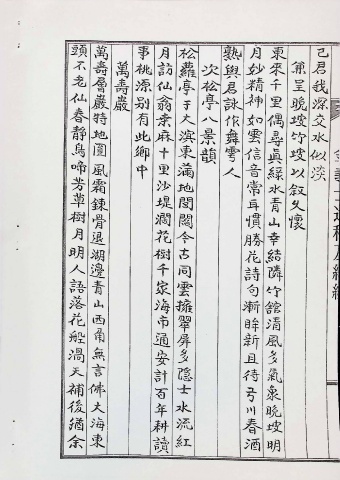 己君我深交水似淡
兼呈晚坡竹坡以叙久懷
東來千里偶尋眞綠水青山幸結隣竹館清風多氣泉晚坡明
月妙精神如雲信音常耳慣勝花詩句漸眸新且待弓川春酒
熟與君詠作舞雩人
次松亭八景韻
松蘿亭子大溟東滿地閭閻今古同雲擁翠屏多隱士水流紅
月訪仙翁桑麻十里沙堤濶花樹千家海市通安計百年耕讀
事桃源別有此鄉中
萬壽巖
萬壽層巖特地圓風霜鍊骨退湖邊青山西角無言佛大海東
頭不老仙春靜鳥啼芳草樹月明人語落花船渦天補後猶余